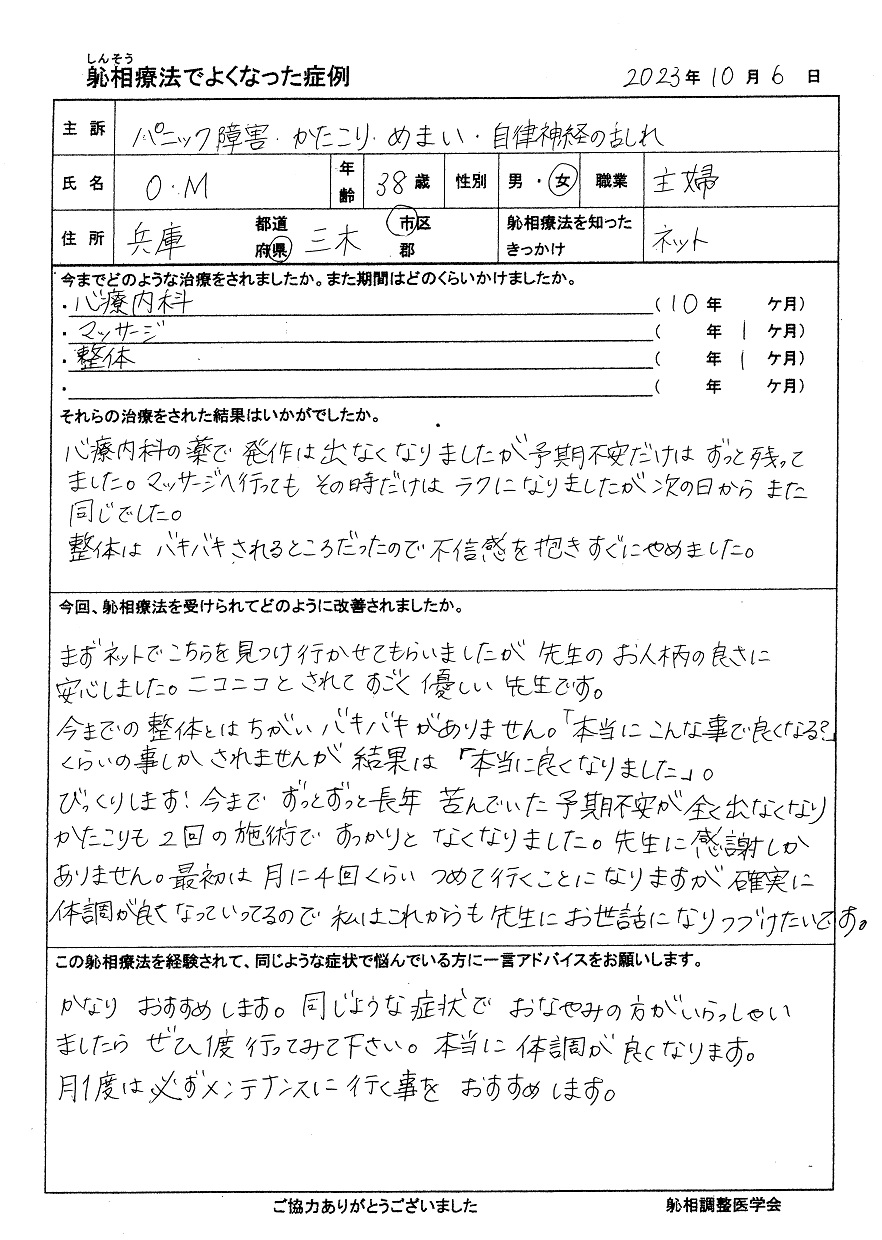 しんそう
躰相療法でよくなった症例 2023年10月6日
主訴 パニック障害・かたこり・めまい・自律神経の乱れ
氏名 O.M 年齢 38歳 性別 男・女 職業 主婦
住所 兵庫 都道府県 三木 市区郡 躰相療法を知ったきっかけ ネット
今までどのような治療をされましたか。また期間はどのくらいかけましたか。
・心療内科 (10年 ケ月)
・マッサージ ( 年 1ケ月)
・整体 ( 年 1ケ月)
・ ( 年 ケ月)
それらの治療をされた結果はいかがでしたか。
心療内科の薬で発作は出なくなりましたが予期不安だけはずっと残って
ました。マッサージへ行ってもその時だけはラクになりましたが次の日からまた
同じでした。
整体はバキバキされるところだったので不信感を抱きすぐにやめました。
今回、躰相療法を受けられてどのように改善されましたか。
まずネットでこちらを見つけ行かせてもらいましたが先生のお人柄の良さに
安心しました。ニコニコとされてすごく優しい先生です。
今までの整体とはちがいバキバキがありません。「本当にこんな事で良くなる?」
くらいの事しかされませんが結果は「本当に良くなりました」。
びっくりします!今までずっとずっと長年苦んでいた予期不安が全く出なくなり
かたこりも2回の施術ですっかりとなくなりました。先生に感謝しか
ありません。最初は月に4回くらいつめて行くことになりますが確実に
体調が良くなっていってるので私はこれからも先生にお世話になりつづけたいです。
この躰相療法を経験されて、同じような症状で悩んでいる方に一言アドバイスをお願いします。
かなりおすすめします。同じような症状でおなやみの方がいらっしゃい
ましたらぜひ1度行ってみて下さい。本当に体調が良くなります。
月1度は必ずメンテナンスに行く事をおすすめします。
ご協力ありがとうございました 躰相調整医学会